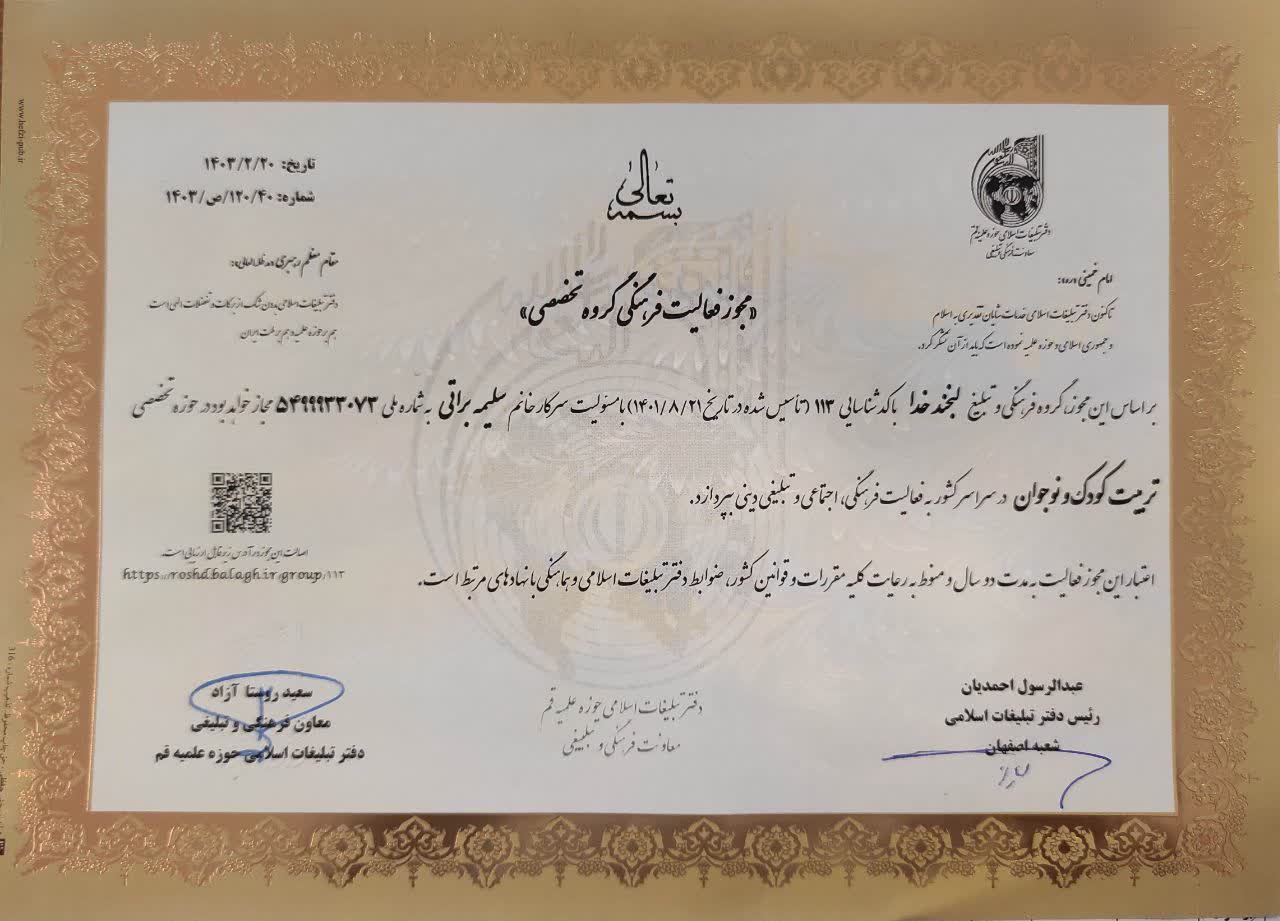 بسمه تعالی
تاریخ: ۱۴۰۳/۲/۲۰
شماره: ۱۲۰/۴۰/ص/۱۴۰۳
دفتر تبلیغات اسلامی حوزه علمیه قم
معاونت فرهنگی و تبلیغی
امام خمینی «ره»:
تاکنون دفتر تبلیغات اسلامی خدمات شایان تقدیری به اسلام
و جمهوری اسلامی و حوزه علمیه نموده است که باید از آن تشکر کرد.
مقام معظم رهبری «مدظله‌العالی»:
دفتر تبلیغات اسلامی بدون شک از برکات و تفضلات الهی است
هم بر حوزه علمیه و هم بر ملت ایران.
«مجوز فعالیت فرهنگی گروه تخصصی»
بر اساس این مجوز، گروه فرهنگی و تبلیغ لبخند خدا با کد شناسایی ۱۱۳ (تأسیس شده در تاریخ ۱۴۰۱/۸/۲۱) با مسئولیت سرکار خانم سلیمه براتی به شماره ملی ۵۴۹۹۹۳۳۰۷۳ مجاز خواهد بود در حوزه تخصصی
تربیت کودک و نوجوان در سراسر کشور به فعالیت فرهنگی، اجتماعی و تبلیغی دینی بپردازد.
اصالت این مجوز در آدرس زیر قابل ارزیابی است.
https://roshd.balagh.ir/group/۱۱۳
اعتبار این مجوز فعالیت به مدت دو سال و منوط به رعایت کلیه مقررات و قوانین کشور، ضوابط دفتر تبلیغات اسلامی و هماهنگی با نهادهای مرتبط است.
عبدالرسول احمدیان
رئیس دفتر تبلیغات اسلامی
شعبه اصفهان
دفتر تبلیغات اسلامی حوزه علمیه قم
معاونت فرهنگی و تبلیغی
سعید روستا آزاد
معاون فرهنگی و تبلیغی
دفتر تبلیغات اسلامی حوزه علمیه قم
www.hefzi-pub.ir